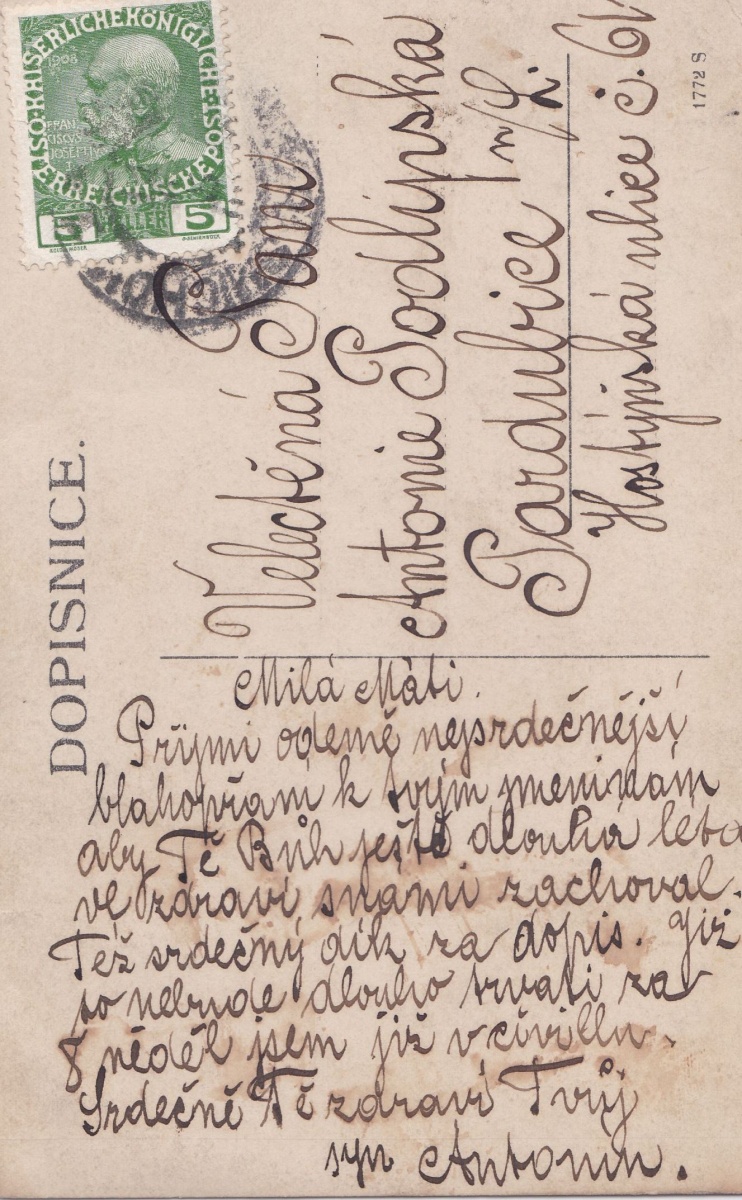 KAISERLICHE KÖNIGLICHE ÖSTERREICHISCHE POST
1908
FRAN
CISCVS
JOSEPH I
5 HELLER 5
DOPISNICE.
Velectěná Paní
Antonie Podlipská
Pardubice n/L.
Hostýnská ulice č. 61
1772 S
Milá Máti.
Přijmi odemě nejsrdečnější
blahopřání k tvým jmeninám
aby Tě Bůh ještě dlouhá léta
ve zdraví snámi zachoval.
Též srdečný dík za dopis. Již
to nebude dlouho trvati za
8 neděl jsem již v civillu.
Srdečně Tě zdraví Tvůj
syn Antonín.